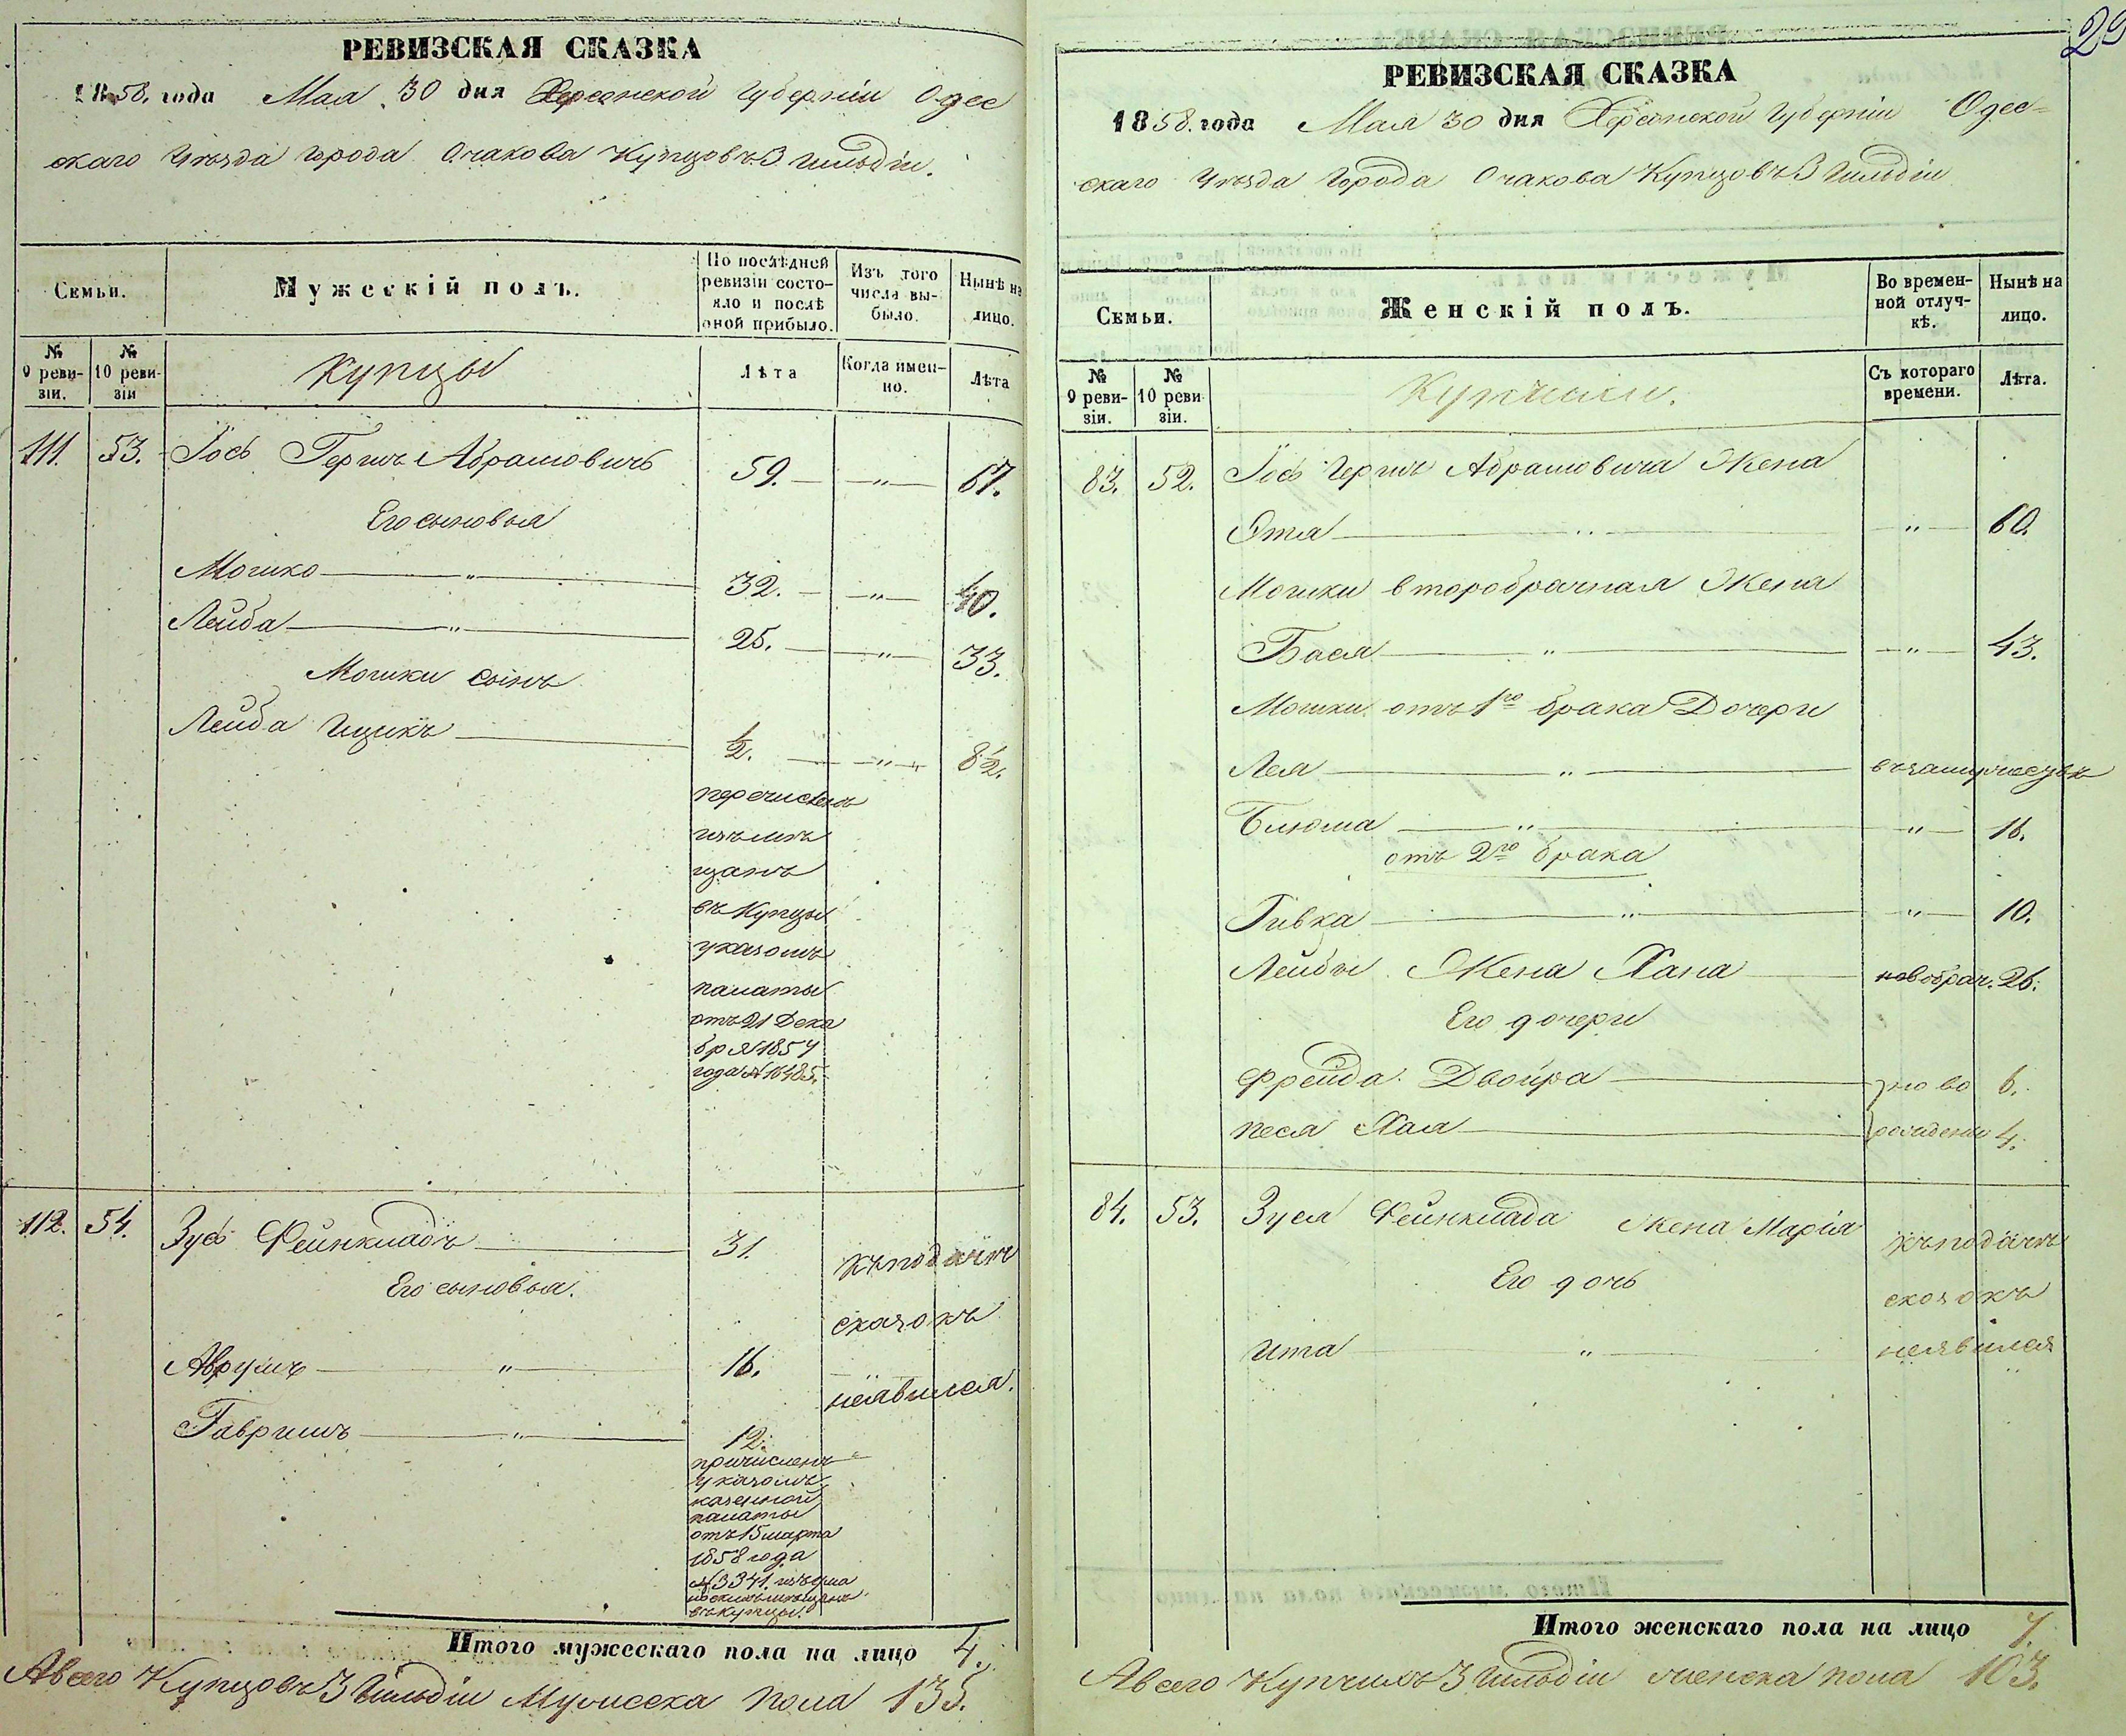 РЕВИЗСКАЯ СКАЗКА
1858. года Мая 30 дня Херсонской Губерніи Одес
скаго Уѣзда Города Очакова Купцовъ 3 Гильдіи.
Семьи.
Мужескій полъ.
По послѣдней ревизіи состо-
яло и послѣ
оной прибыло.
Изъ того
числа вы-
было.
Нынѣ на
лицо.
№
9 реви-
зіи.
№
10 реви-
зіи
Купцы
Лѣта
Когда имен-
но.
Лѣта
111. 53. Іось Гершъ Абрамовичъ 59. — „ — 67.
Его сыновья
Мошко — „ — 32. — „ — 40.
Лейба — „ — 25. — „ — 33.
Мошки сынъ
Лейба Ицикъ — ½. — „ — 8½.
перечисленъ
изъ мѣ
щанъ
въ Купцы
указомъ
палаты
отъ 21 Дека
бря 1857
года № 16485.
112. 54. Зусь Фейнкладъ — 31. къ подачѣ
Его сыновья.
сказокъ
Аврумъ — „ — 16.
неявился.
Гавришъ — „ — 12.
причисленъ
указомъ
казенной
палаты
отъ 15 марта
1858 года
№ 3341. изъ
въ купцы.
Итого мужескаго пола на лицо 4.
А всего Купцовъ 3 Гильдіи Мужеска пола 135.
29
РЕВИЗСКАЯ СКАЗКА
1858. года Мая 30 дня Херсонской Губерніи Одес=
скаго Уѣзда Города Очакова Купцовъ 3 Гильдіи
Семьи.
Женскій полъ.
Во времен-
ной отлуч-
кѣ.
Нынѣ на
лицо.
№
9 реви-
зіи.
№
10 реви
зіи.
Купчихи.
Съ котораго
времени.
Лѣта.
83. 52. Іось Гершъ Абрамовича Жена
Эта — „ — „ — 60.
Мошки второбрачная Жена
Бася — „ — „ — 43.
Мошки отъ 1го брака Дочери
Лея — „ — въ замужествѣ
Блюма — „ — „ — 16.
отъ 2го брака
Ривка — „ — „ — 10.
Лейбы Жена Хана — новобрач. 26.
Его дочери
Фрейда Двойра — ново 6.
Песя Хая — рожденн 4.
84. 53. Зуся Фейнклада Жена Марія къ подачѣ
Его дочь
сказокъ
Ита — „ — неявился
Итого женскаго пола на лицо 7.
А всего Купчихъ 3 Гильдіи женска пола 103.